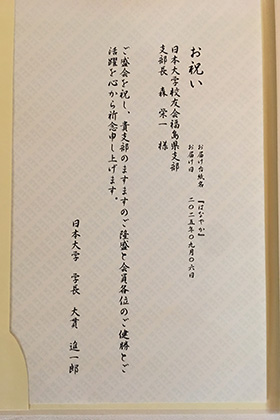 お祝い
お届け台紙名 『はなやか』
お届け日 二〇二五年〇九月〇六日
日本大学校友会福島県支部
支部長 森 栄一 様
ご盛会を祝し、貴支部のますますのご隆盛と会員各位のご健勝とご
活躍を心から祈念申し上げます。
日本大学 学長 大貫 進一郎